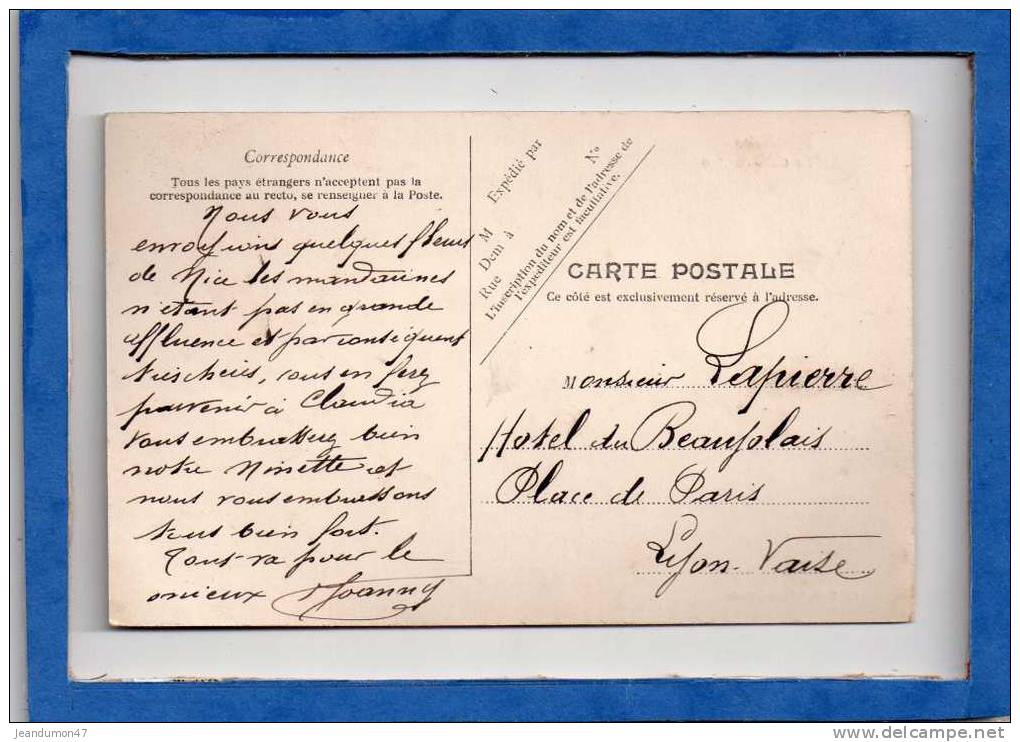 Correspondance
Tous les pays étrangers n'acceptent pas la
correspondance au recto, se renseigner à la Poste.
Nous vous
envoyions quelques fleurs
de Nice les mandarines
n'étant pas en grande
affluence et par conséquent
très chères, vous en ferez
parvenir à Claudia
Vous embrasserez bien
notre Ninette et
nous vous embrassons
tous bien fort.
Tout va pour le
mieux Joanny
Expédié par
M
Dem à
Rue No
L'inscription du nom et de l'adresse de
l'expéditeur est facultative.
CARTE POSTALE
Ce côté est exclusivement réservé à l'adresse.
Monsieur Lapierre
Hotel du Beaujolais
Place de Paris
Lyon-Vaise
jeandumon47
www.delcampe.net